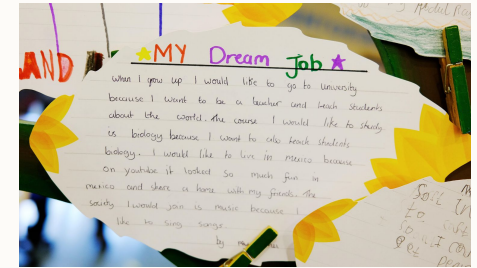 AND
MY Dream Job
when I grow up I would like to go to university
because I want to be a teacher and teach students
about the world. The course I would like to study
is biology because I want to also teach students
biology. I would like to live in mexico because
on youtube it looked so much fun in
mexico and share a home with my friends. The
society I would join is music because I
like to sing songs.
by
Soft
to
to
get